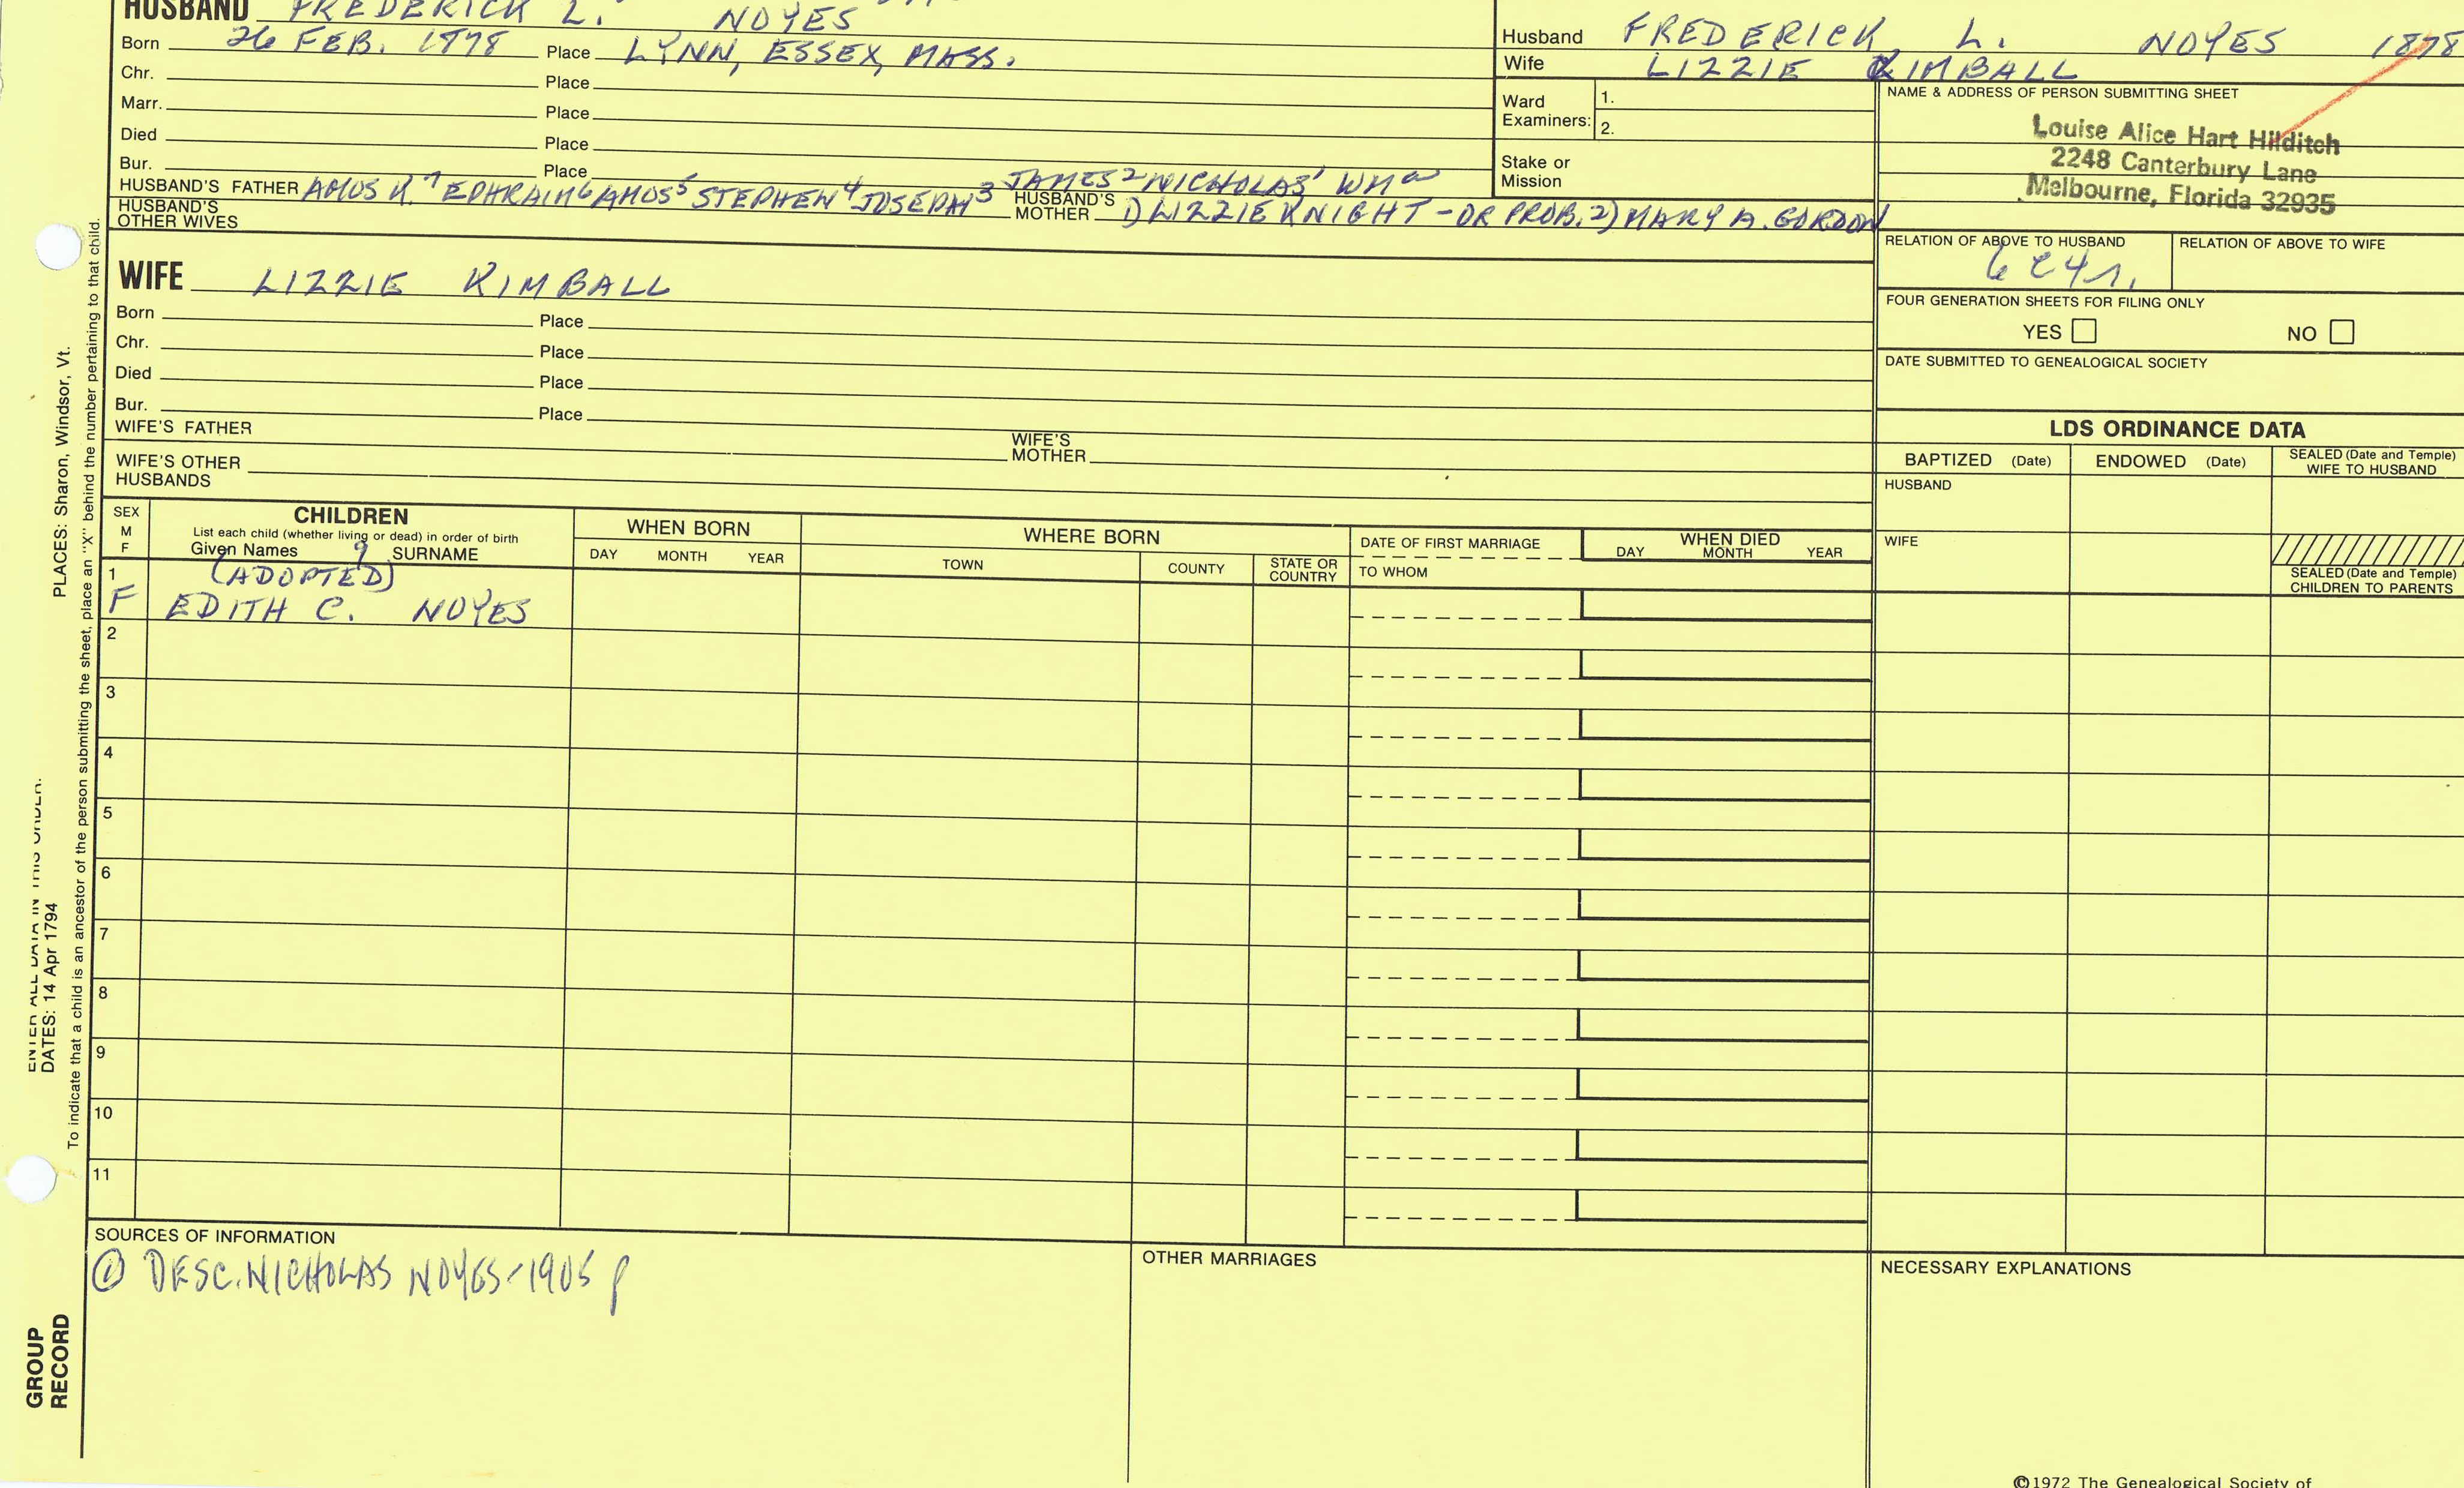 HUSBAND FREDERICK L. NOYES
Born 26 FEB. 1878 Place LYNN, ESSEX, MASS.
Chr. Place
Marr. Place
Died Place
Bur. Place
HUSBAND'S FATHER AMOS K.7 EPHRAIM6 AMOS5 STEPHEN4 JOSEPH3 JAMES2 NICHOLAS1 WMa
HUSBAND'S MOTHER 1) LIZZIE KNIGHT - OR PROB. 2) MARY A. GORDON
HUSBAND'S OTHER WIVES
Husband FREDERICK L. NOYES 1878
Wife LIZZIE KIMBALL
Ward Examiners: 1.
2.
Stake or Mission
NAME & ADDRESS OF PERSON SUBMITTING SHEET
Louise Alice Hart Hilditch
2248 Canterbury Lane
Melbourne, Florida 32935
RELATION OF ABOVE TO HUSBAND RELATION OF ABOVE TO WIFE
6c4r.
FOUR GENERATION SHEETS FOR FILING ONLY
YES NO
DATE SUBMITTED TO GENEALOGICAL SOCIETY
WIFE LIZZIE KIMBALL
Born Place
Chr. Place
Died Place
Bur. Place
WIFE'S FATHER WIFE'S MOTHER
WIFE'S OTHER HUSBANDS
LDS ORDINANCE DATA
BAPTIZED (Date) ENDOWED (Date) SEALED (Date and Temple) WIFE TO HUSBAND
HUSBAND
WIFE
SEALED (Date and Temple) CHILDREN TO PARENTS
SEX M F
CHILDREN
List each child (whether living or dead) in order of birth
Given Names 9 SURNAME
WHEN BORN
DAY MONTH YEAR
WHERE BORN
TOWN COUNTY STATE OR COUNTRY
DATE OF FIRST MARRIAGE
TO WHOM
WHEN DIED
DAY MONTH YEAR
1 (ADOPTED)
F EDITH C. NOYES
2
3
4
5
6
7
8
9
10
11
SOURCES OF INFORMATION
① DESC. NICHOLAS NOYES-1905 p
OTHER MARRIAGES
NECESSARY EXPLANATIONS
©1972 The Genealogical Society of
ENTER ALL DATA IN THIS ORDER:
DATES: 14 Apr 1794 PLACES: Sharon, Windsor, Vt.
To indicate that a child is an ancestor of the person submitting the sheet, place an "X" behind the number pertaining to that child.
GROUP
RECORD